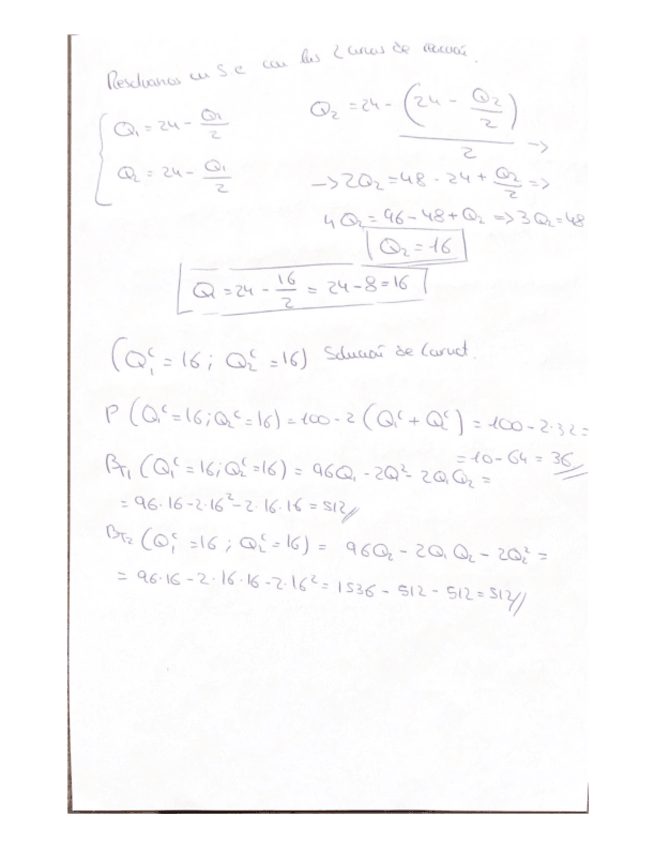 Resolvemos un S.E con las 2 curvas de reacción.
Q₁ = 24 - Q₁/2
Q₂ = 24 - Q₁/2
Q₂ = 24 - (24 - Q₂/2)/2 ->
-> 2Q₂ = 48 - 24 + Q₂/2 =>
4Q₂ = 96 - 48 + Q₂ => 3Q₂ = 48
Q₂ = 16
Q = 24 - 16/2 = 24 - 8 = 16
(Q₁ᶜ = 16 ; Q₂ᶜ = 16) Solución de Carnot.
P (Q₁ᶜ = 16; Q₂ᶜ = 16) = 100 - 2 (Q₁ᶜ + Q₂ᶜ) = 100 - 2·32 =
= 10 - 64 = 36
BT₁ (Q₁ᶜ = 16; Q₂ᶜ = 16) = 96Q₁ - 2Q² - 2Q₁Q₂ =
= 96·16 - 2·16² - 2·16·16 = 512
BT₂ (Q₁ᶜ = 16 ; Q₂ᶜ = 16) = 96Q₂ - 2Q₁Q₂ - 2Q₂² =
= 96·16 - 2·16·16 - 2·16² = 1536 - 512 - 512 = 512